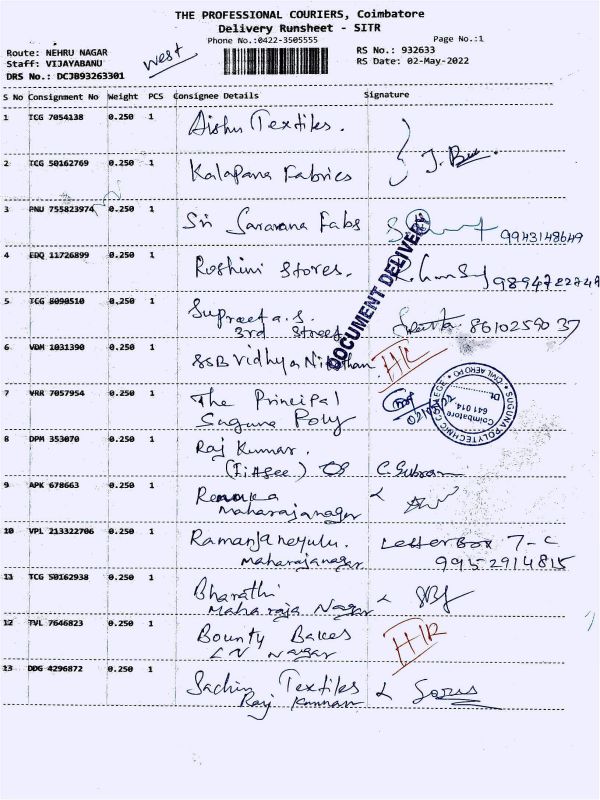 THE PROFESSIONAL COURIERS, Coimbatore
Delivery Runsheet - SITR
Phone No.:0422-3505555
Page No.:1
Route: NEHRU NAGAR
Staff: VIJAYABANU
DRS No.: DCJB93263301
west
RS No.: 932633
RS Date: 02-May-2022
S No Consignment No Weight PCS Consignee Details Signature
1 TCG 7054138 0.250 1 Aishu Textiles.
2 TCG 50162769 0.250 1 Kalapana Fabrics
3 PNU 755823974 0.250 1 Sri Saravana Fabs 9943148649
4 EDQ 11726899 0.250 1 Roshini Stores.
DOCUMENT DELIVERY
5 TCG 8090510 0.250 1 Supreeta.S. 8610259037
3rd Street
6 VDM 1031390 0.250 1 SSB Vidhya Nikethan
7 VRR 7057954 0.250 1 The Principal
Suguna Poly
SUGUNA POLYTECHNIC COLLEGE
CIVIL AERO PO
Coimbatore
641 014.
8 DPM 353070 0.250 1 Raj Kumar.
(Fiitjee) C. Subram
9 APK 678663 0.250 1 Renuka
Maharajanagar
10 VPL 213322706 0.250 1 Ramanjaneyulu. Letterbox 7-C
Maharajanagar 9952914815
11 TCG 50162938 0.250 1 Bharathi
Maharaja Nagar
12 TVL 7646823 0.250 1 Bounty Bakes
LV Nagar
13 DDG 4296872 0.250 1 Sachin Textiles
Raj Kannan